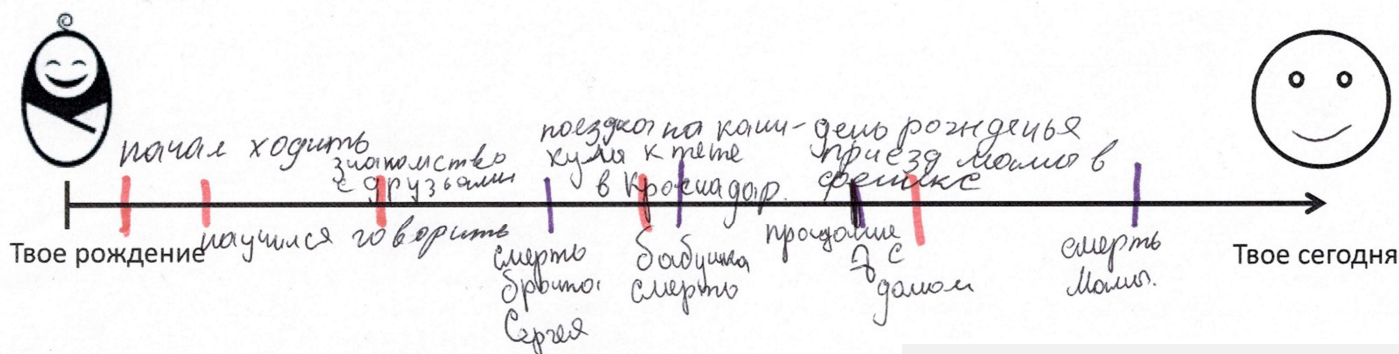 начал ходить
знакомство
с друзьями
поездка на кани-
кулы к тете
в Краснадар.
день рожденья
приезд мамы в
феникс
Твое рождение
научился говорить
смерть
брата
Сергея
бабушка
смерть
прощание
с
домом
смерть
Мамы.
Твое сегодня